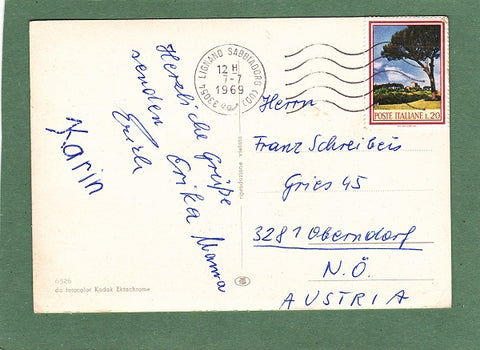 Herzliche Grüße
senden Erika Mama
Erich
Karin
6526
da fotocolor Kodak Ektachrome
riproduzione vietata
33054 LIGNANO SABBIADORO (UD)
12 H
7-7
1969
POSTE ITALIANE L.20
Herrn
Franz Schreibeis
Gries 45
3281 Oberndorf
N.Ö.
AUSTRIA